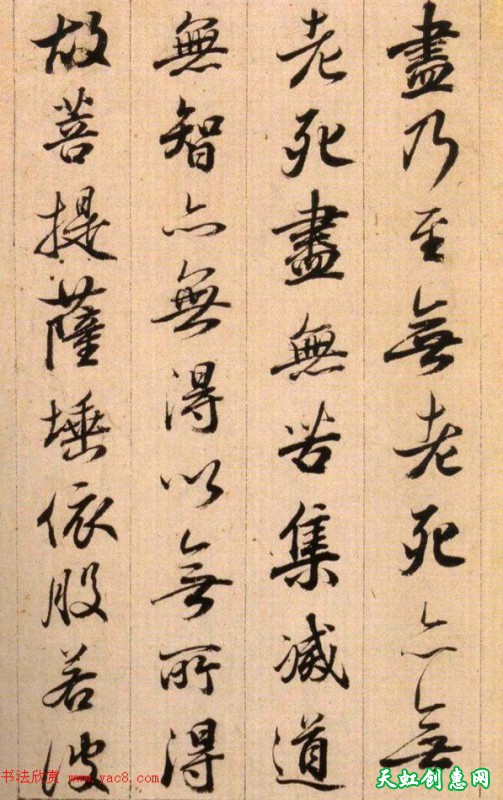 盡乃至無老死亦無
老死盡無苦集滅道
無智亦無得以無所得
故菩提薩埵依般若波
书法欣赏 www.yac8.com
天虹创意网